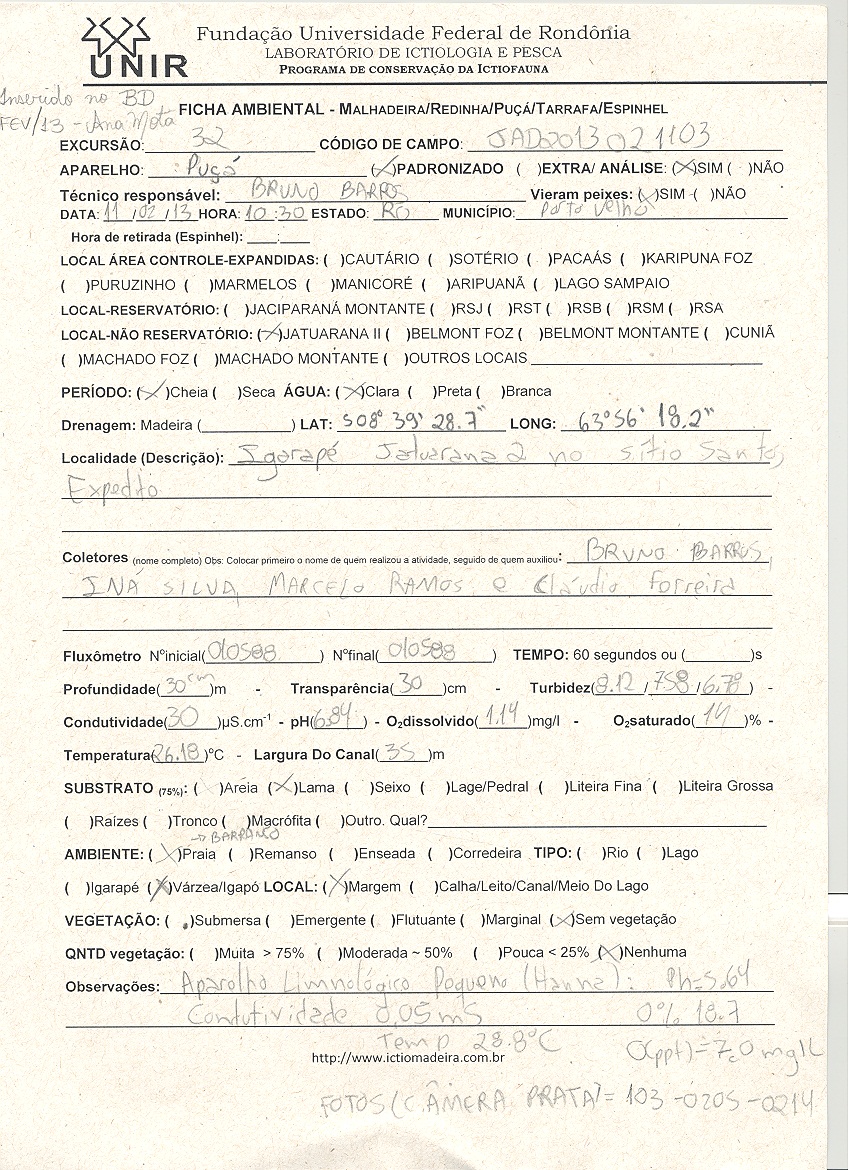 UNIR
Fundação Universidade Federal de Rondônia
LABORATÓRIO DE ICTIOLOGIA E PESCA
PROGRAMA DE CONSERVAÇÃO DA ICTIOFAUNA
Inserido no BD
FEV/13 - Ana Mota
FICHA AMBIENTAL - MALHADEIRA/REDINHA/PUÇÁ/TARRAFA/ESPINHEL
EXCURSÃO: 32 CÓDIGO DE CAMPO: JAD2013021103
APARELHO: Puçá (X)PADRONIZADO ( )EXTRA/ ANÁLISE: (X)SIM ( )NÃO
Técnico responsável: BRUNO BARROS Vieram peixes: (X)SIM ( )NÃO
DATA: 11/02/13 HORA: 10:30 ESTADO: RO MUNICÍPIO: Porto Velho
Hora de retirada (Espinhel): ___:___
LOCAL ÁREA CONTROLE-EXPANDIDAS: ( )CAUTÁRIO ( )SOTÉRIO ( )PACAÁS ( )KARIPUNA FOZ
( )PURUZINHO ( )MARMELOS ( )MANICORÉ ( )ARIPUANÃ ( )LAGO SAMPAIO
LOCAL-RESERVATÓRIO: ( )JACIPARANÁ MONTANTE ( )RSJ ( )RST ( )RSB ( )RSM ( )RSA
LOCAL-NÃO RESERVATÓRIO: (X)JATUARANA II ( )BELMONT FOZ ( )BELMONT MONTANTE ( )CUNIÃ
( )MACHADO FOZ ( )MACHADO MONTANTE ( )OUTROS LOCAIS
PERÍODO: (X)Cheia ( )Seca ÁGUA: (X)Clara ( )Preta ( )Branca
Drenagem: Madeira (____) LAT: S08° 39' 28.7" LONG: 63°56' 18.2"
Localidade (Descrição): Igarapé Jatuarana 2 no sítio Santo
Expedito
Coletores (nome completo) Obs: Colocar primeiro o nome de quem realizou a atividade, seguido de quem auxiliou: BRUNO BARROS,
INÁ SILVA, MARCELO RAMOS e Cláudio Ferreira
Fluxômetro Nºinicial(010588) Nºfinal(010588) TEMPO: 60 segundos ou (____)s
Profundidade(30cm)m - Transparência(30)cm - Turbidez(8.12/7.58/6.78) -
Condutividade(30)µS.cm-¹ - pH(6.84) - O2dissolvido(1.14)mg/l - O2saturado(14)% -
Temperatura(26.18)ºC - Largura Do Canal(35)m
SUBSTRATO (75%): ( )Areia (X)Lama ( )Seixo ( )Lage/Pedral ( )Liteira Fina ( )Liteira Grossa
( )Raízes ( )Tronco ( )Macrófita ( )Outro. Qual?
→ BARRANCO
AMBIENTE: (X)Praia ( )Remanso ( )Enseada ( )Corredeira TIPO: ( )Rio ( )Lago
( )Igarapé (X)Várzea/Igapó LOCAL: (X)Margem ( )Calha/Leito/Canal/Meio Do Lago
VEGETAÇÃO: ( )Submersa ( )Emergente ( )Flutuante ( )Marginal (X)Sem vegetação
QNTD vegetação: ( )Muita > 75% ( )Moderada ~ 50% ( )Pouca < 25% (X)Nenhuma
Observações: Aparelho Limnológico Pequeno (Hanna): Ph=5.64
Condutividade 0,05 mS O% 18.7
Temp 28.8°C O(ppt)=7,0 mg/L
http://www.ictiomadeira.com.br
FOTOS (CÂMERA PRATA)= 103-0205-0214